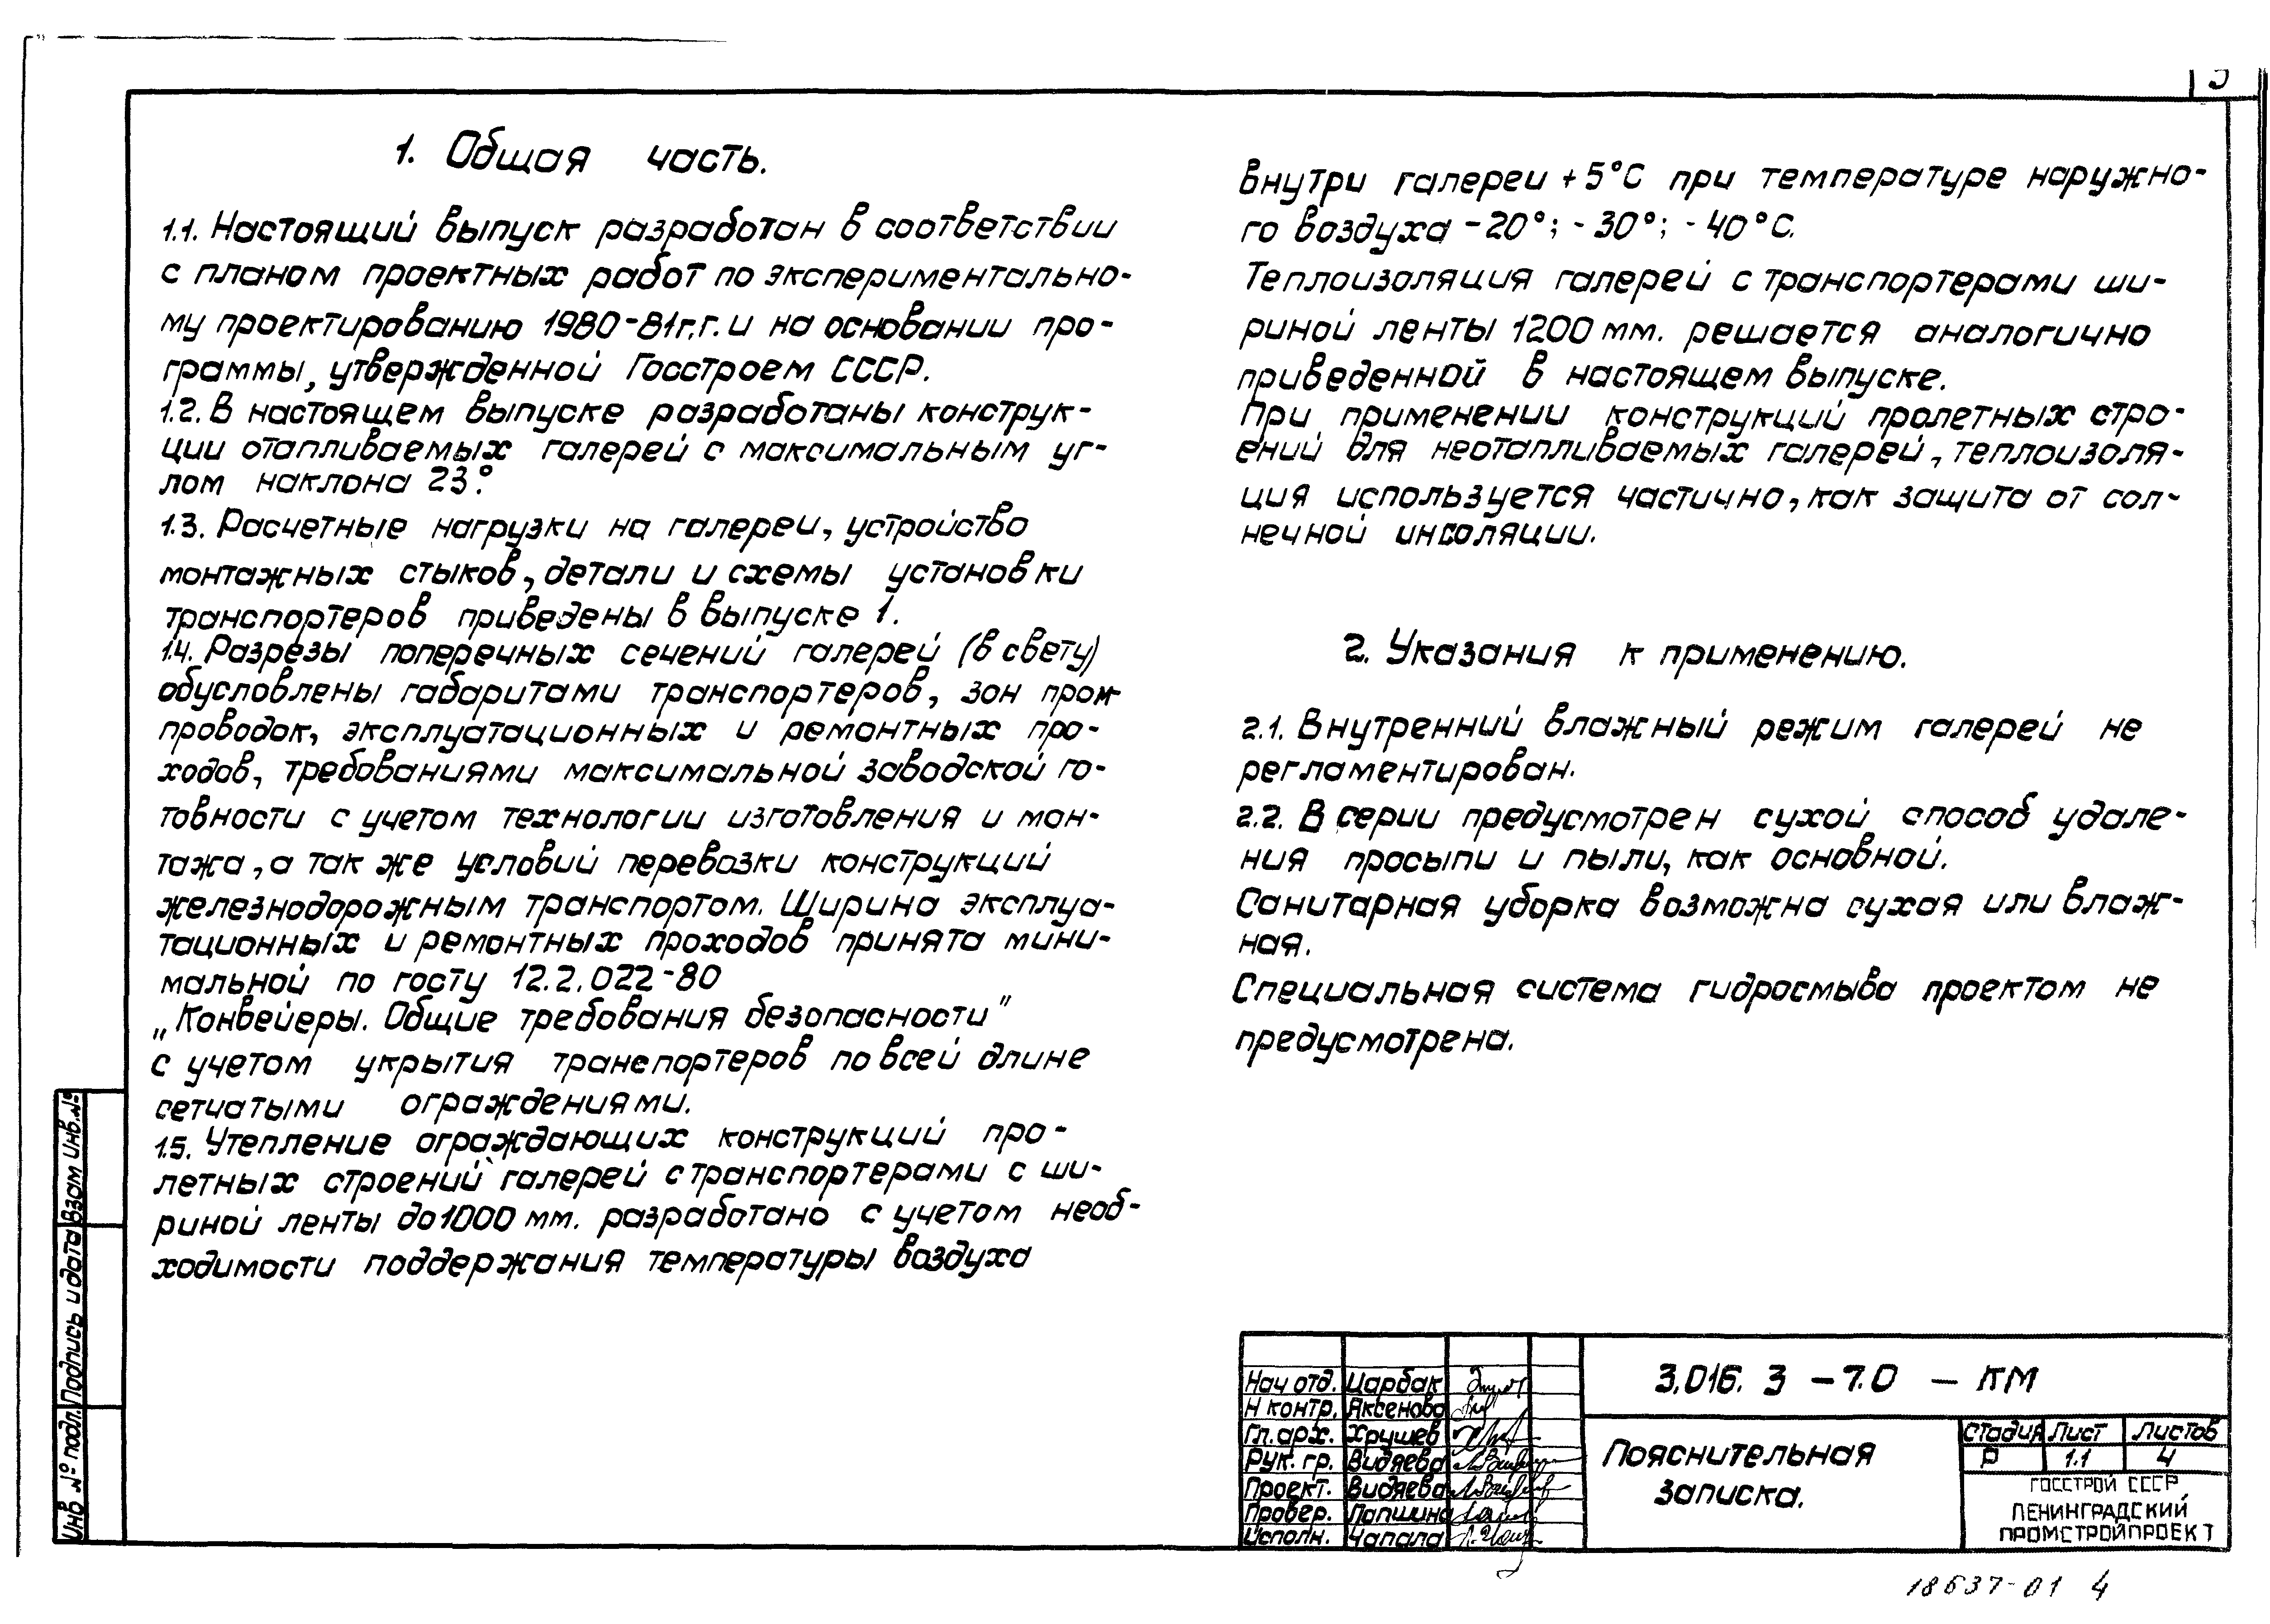 1. Общая часть.
1.1. Настоящий выпуск разработан в соответствии
с планом проектных работ по экспериментально-
му проектированию 1980-81г.г. и на основании про-
граммы, утвержденной Госстроем СССР.
1.2. В настоящем выпуске разработаны конструк-
ции отапливаемых галерей с максимальным уг-
лом наклона 23°.
1.3. Расчетные нагрузки на галереи, устройство
монтажных стыков, детали и схемы установки
транспортеров приведены в выпуске 1.
1.4. Разрезы поперечных сечений галерей (в свету)
обусловлены габаритами транспортеров, зон пром-
проводок, эксплуатационных и ремонтных про-
ходов, требованиями максимальной заводской го-
товности с учетом технологии изготовления и мон-
тажа, а так же условий перевозки конструкций
железнодорожным транспортом. Ширина эксплуа-
тационных и ремонтных проходов принята мини-
мальной по госту 12.2.022-80
„Конвейеры. Общие требования безопасности"
с учетом укрытия транспортеров по всей длине
сетчатыми ограждениями.
1.5. Утепление ограждающих конструкций про-
летных строений галерей с транспортерами с ши-
риной ленты до 1000 мм. разработано с учетом необ-
ходимости поддержания температуры воздуха
внутри галереи +5°С при температуре наружно-
го воздуха -20°; -30°; -40°С.
Теплоизоляция галерей с транспортерами ши-
риной ленты 1200 мм. решается аналогично
приведенной в настоящем выпуске.
При применении конструкций пролетных стро-
ений для неотапливаемых галерей, теплоизоля-
ция используется частично, как защита от сол-
нечной инсоляции.
2. Указания к применению.
2.1. Внутренний влажный режим галерей не
регламентирован.
2.2. В серии предусмотрен сухой способ удале-
ния просыпи и пыли, как основной.
Санитарная уборка возможна сухая или влаж-
ная.
Специальная система гидросмыва проектом не
предусмотрена.
Инв № подл. Подпись и дата Взам инв. №
Нач отд. Царбак
Н контр. Аксенова
Гл. арх. Хрущев
Рук. гр. Видяева
Проект. Видяева
Провер. Лапшина
Исполн. Чапала
3.016.3-7.0-КМ
Пояснительная
записка.
Стадия Лист Листов
Р 1.1 4
ГОССТРОЙ СССР
ЛЕНИНГРАДСКИЙ
ПРОМСТРОЙПРОЕКТ
18637-01 4